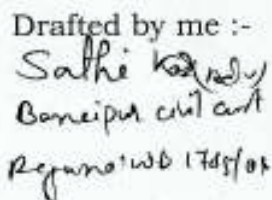 Drafted by me :-
Sathi
Baruipur civil court
Regn no: WB 1785/08